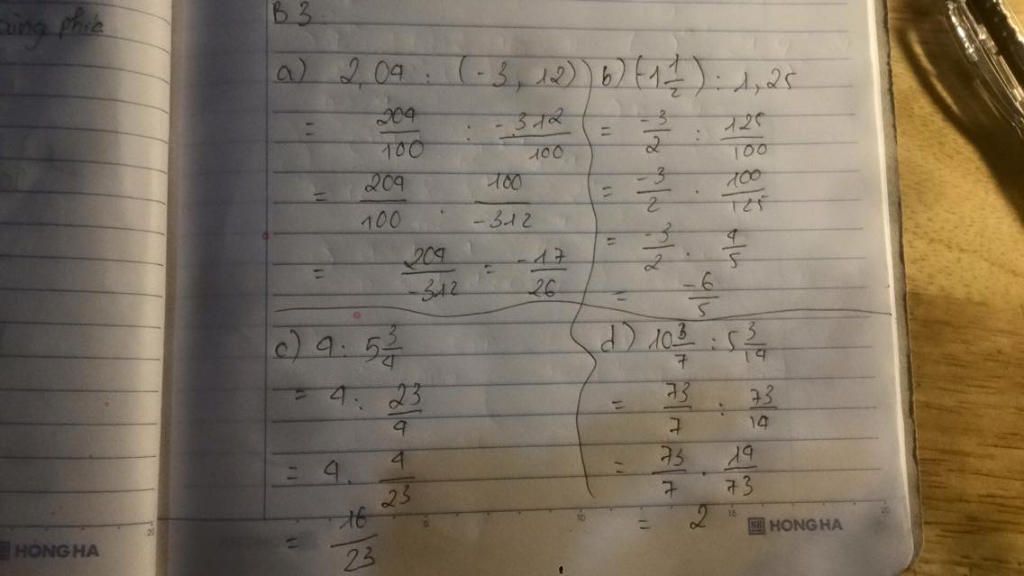 cùng phía
B3.
a) 2,04 : (-3,12)
= 204/100 : -312/100
= 204/100 . 100/-312
= 204/-312 = -17/26
b) (-1 1/2) : 1,25
= -3/2 : 125/100
= -3/2 . 100/125
= -3/2 . 4/5
= -6/5
c) 4 : 5 3/4
= 4 : 23/4
= 4 . 4/23
= 16/23
d) 10 3/7 : 5 3/14
= 73/7 : 73/14
= 73/7 . 14/73
= 2
HONG HA
HONG HA